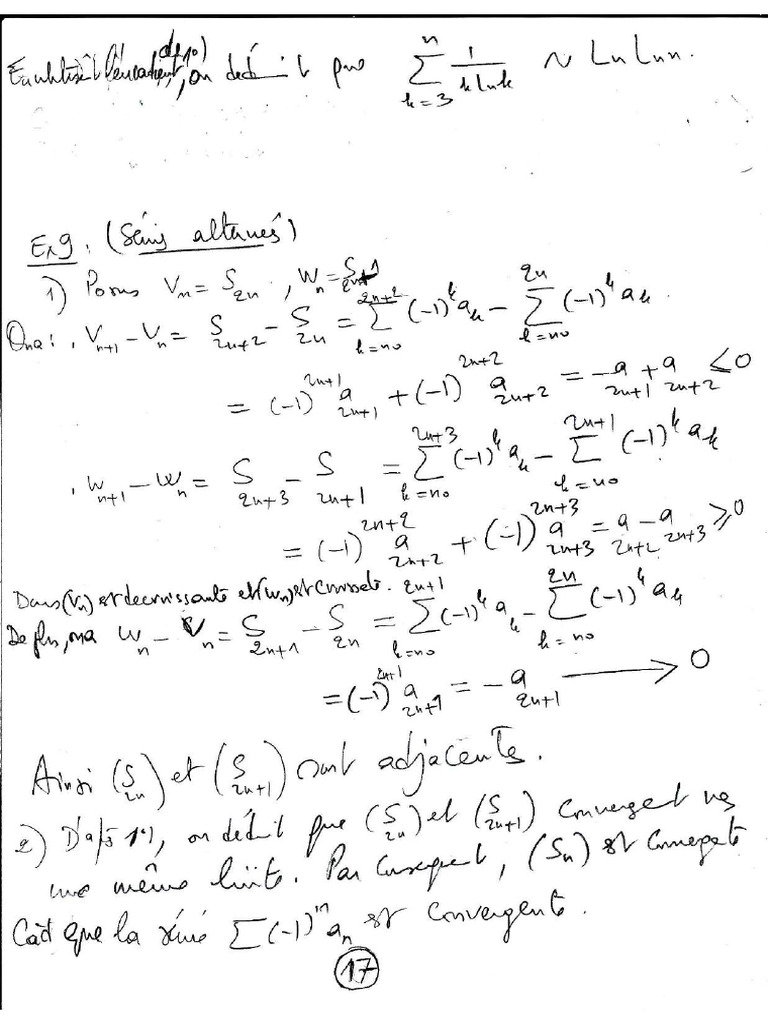 En utilisant l'encadrement de 1°), on déduit que $\sum_{k=3}^{n} \frac{1}{k \ln k} \sim \ln \ln n.$
Ex9. (Séries alternées)
1) Posons $V_n = S_{2n}$, $W_n = S_{2n+1}$
On a : . $V_{n+1} - V_n = S_{2n+2} - S_{2n} = \sum_{k=n_0}^{2n+2} (-1)^k a_k - \sum_{k=n_0}^{2n} (-1)^k a_k.$
$= (-1)^{2n+1} a_{2n+1} + (-1)^{2n+2} a_{2n+2} = -a_{2n+1} + a_{2n+2} \leq 0$
. $W_{n+1} - W_n = S_{2n+3} - S_{2n+1} = \sum_{k=n_0}^{2n+3} (-1)^k a_k - \sum_{k=n_0}^{2n+1} (-1)^k a_k$
$= (-1)^{2n+2} a_{2n+2} + (-1)^{2n+3} a_{2n+3} = a_{2n+2} - a_{2n+3} \geq 0$
Donc $(V_n)$ est décroissante et $(W_n)$ est croissante.
De plus, on a $W_n - V_n = S_{2n+1} - S_{2n} = \sum_{k=n_0}^{2n+1} (-1)^k a_k - \sum_{k=n_0}^{2n} (-1)^k a_k$
$= (-1)^{2n+1} a_{2n+1} = -a_{2n+1} \longrightarrow 0$
Ainsi $(S_{2n})$ et $(S_{2n+1})$ sont adjacentes.
2) D'après 1°), on déduit que $(S_{2n})$ et $(S_{2n+1})$ convergent vers
une même limite. Par conséquent, $(S_n)$ est convergente
Càd que la série $\sum (-1)^n a_n$ est convergente.
17